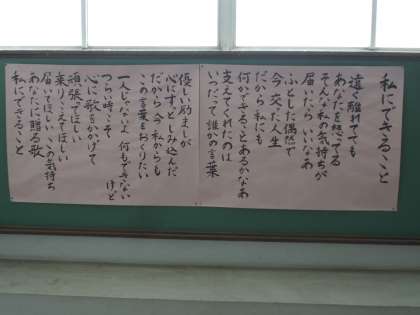 私にできること
遠く離れてても
あなたを想ってる
そんな私の気持ちが
届いたらいいなあ
ふとした偶然で
今交った人生
だから私にも
何かできることあるかなあ
支えてくれたのは
いつだって誰かの言葉
優しい励ましが
心にずっとしみ込んだ
だから今私からも
この言葉をおくりたい
一人じゃないよ何もできないけど
つらい時こそ
心に歌をかかげて
頑張ってほしい
乗りこえてほしい
届いてほしいこの気持ち
あなたに贈る歌
私にできること